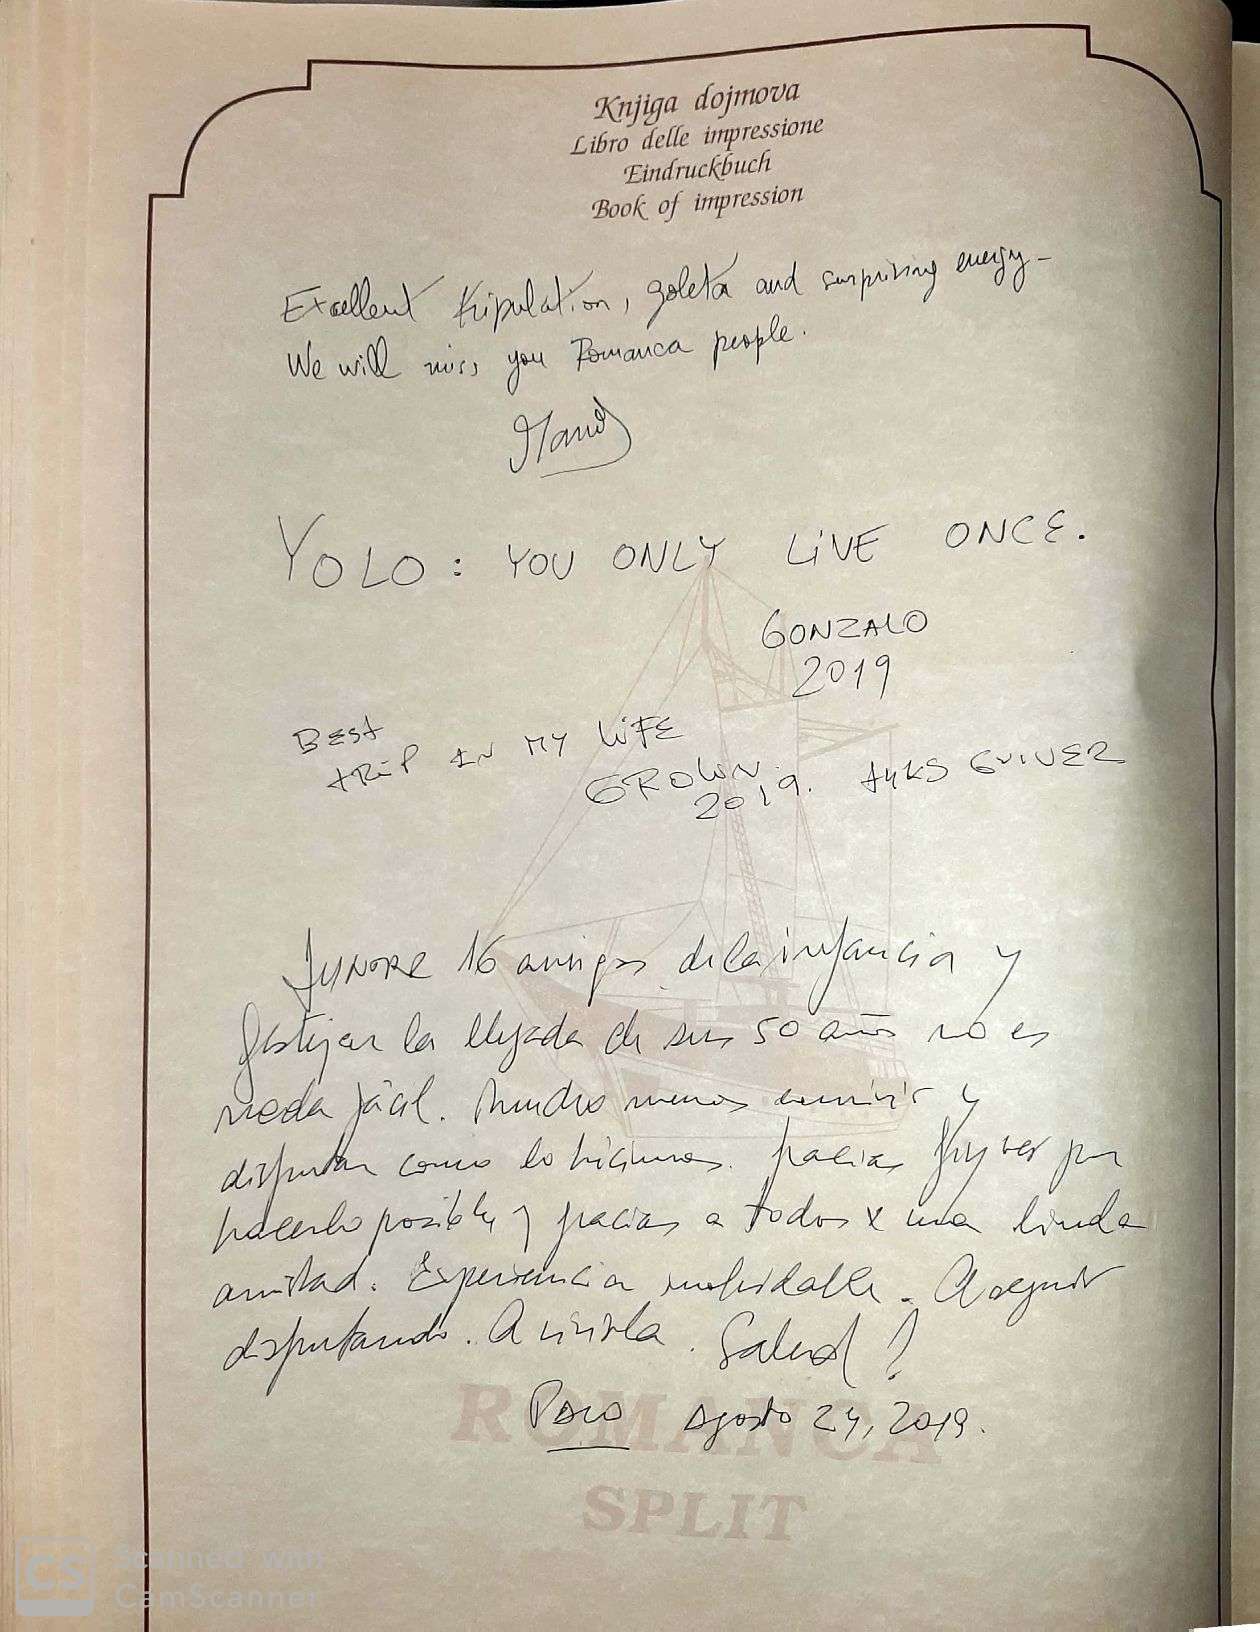 Knjiga dojmova
Libro delle impressione
Eindruckbuch
Book of impression
Excellent tripulation, goleta and surprising energy-
We will miss you Romanca people.
YOLO: YOU ONLY LiVE ONCE.
GONZALO
2019
BEST
tRiP IN MY LiFE
GROWN.
2019.
JUNTAR 16 amigos de la infancia y
festejar la llegada de sus 50 años no es
nada fácil. Mucho menos convivir y
disfrutar como lo hicimos. gracias por
hacerlo posible y gracias a todos x una linda
amistad. Experiencia inolvidable. A seguir
disfrutando. A vivirla. Salud!
agosto 24, 2019.
ROMANCA
SPLIT
CS Scanned with
CamScanner